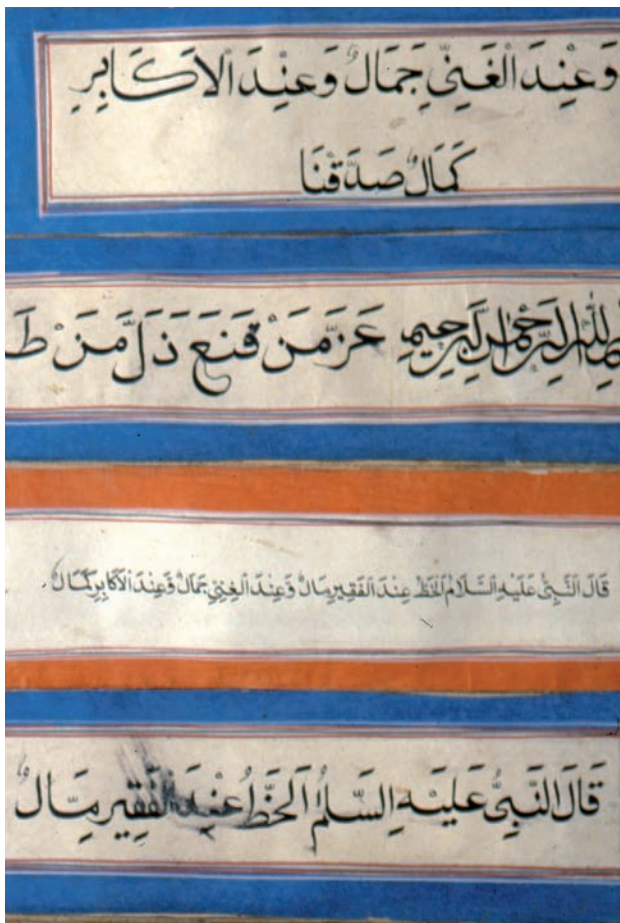 وَعِنْدَ الْغَنِيِّ جَمَالٌ وَعِنْدَ الْاَكَابِرِ
كَمَالٌ صَدَقْنَا
اللّٰهِ الرَّحْمٰنِ الرَّحِيمِ عَزَّ مَنْ قَنَعَ ذَلَّ مَنْ طَ
قَالَ النَّبِيُّ عَلَيْهِ السَّلَامُ الْخَطُّ عِنْدَ الْفَقِيرِ مَالٌ وَعِنْدَ الْغَنِيِّ جَمَالٌ وَعِنْدَ الْاَكَابِرِ كَمَالٌ
قَالَ النَّبِيُّ عَلَيْهِ السَّلٰمُ اَلْخَطُّ عِنْدَ الْفَقِيرِ مَالٌ